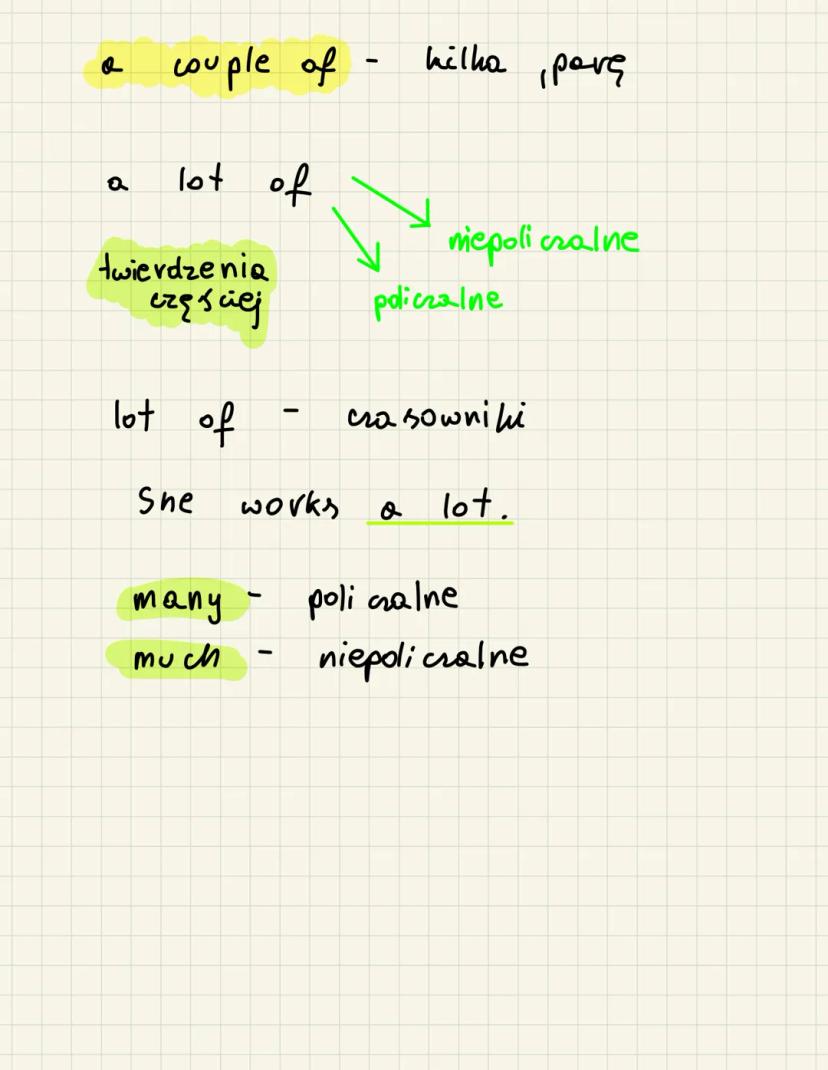 a couple of - kilka, parę
a lot of
niepoliczalne
twierdzenia
policzalne
częściej
lot of - czasowniki
She works a lot.
many - policzalne
much - niepoliczalne